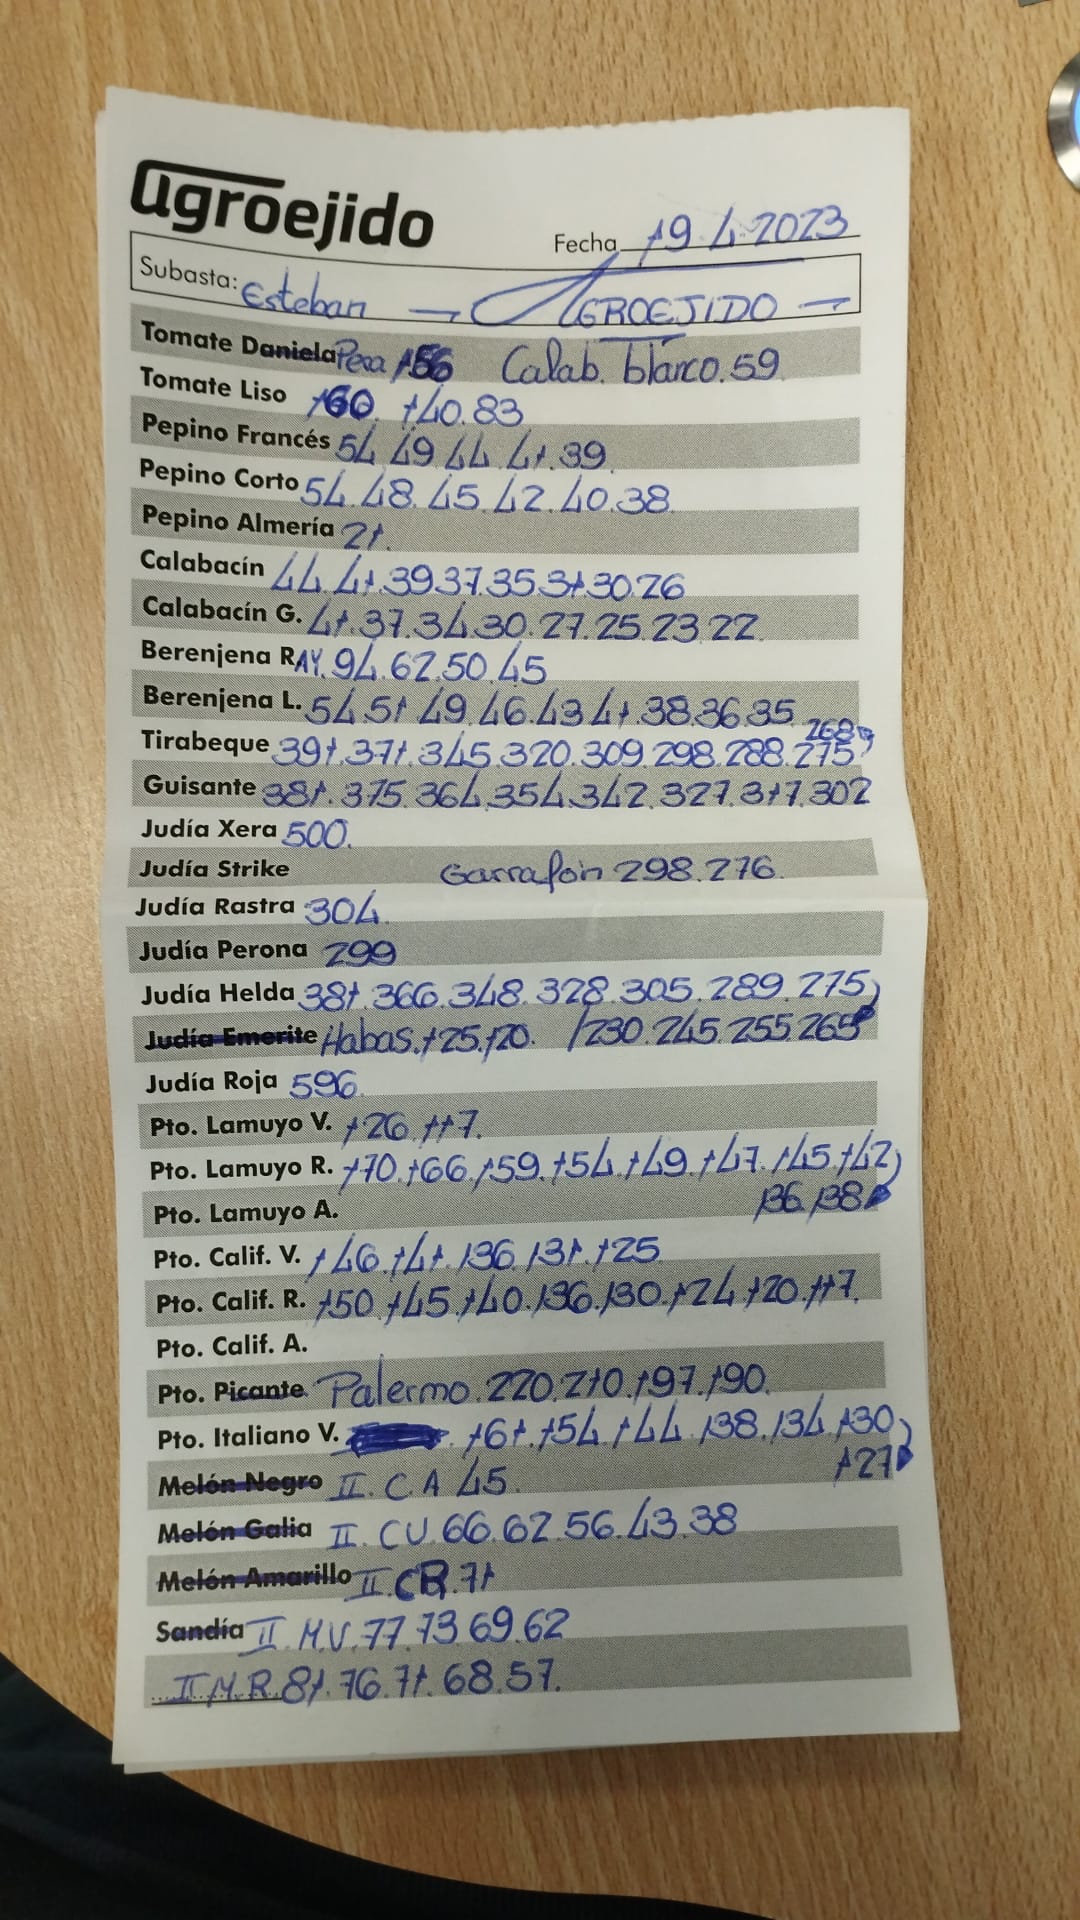 agroejido
Fecha 19.4.2023
Subasta: Esteban → AGROEJIDO —
Tomate Daniela Pera 156 Calab. blanco. 59
Tomate Liso 160. 140.83
Pepino Francés 54 49 44 41.39
Pepino Corto 54.48.45.42.40.38
Pepino Almería 21.
Calabacín 44.41.39 37.35 31 30.26
Calabacín G. 41.37.34.30.27.25.23.22
Berenjena RAY. 94.62.50.45
Berenjena L. 54.51 49.46.43 41 38.36.35
Tirabeque 391.371.345.320.309.298.288.275 268
Guisante 381.375.364.354.342.327.317.302
Judía Xera 500.
Judía Strike Garrafón 298.276.
Judía Rastra 304.
Judía Perona 299
Judía Helda 381.366.348.328.305.289.275
Judía Emerite Habas. 125.120. /230.245.255.265
Judía Roja 596
Pto. Lamuyo V. 126 117.
Pto. Lamuyo R. 170.166.159.154.149.147.145.142
Pto. Lamuyo A. 136.138
Pto. Calif. V. 146.141.136.131.125
Pto. Calif. R. 150.145.140.136.130.124.120.117.
Pto. Calif. A.
Pto. Picante Palermo.220.210.197.190.
Pto. Italiano V. 161.154.144 138.134.130
Melón Negro II. CA 45. 127
Melón Galia II. CU.66.62.56.43.38
Melón Amarillo II. CR.71
Sandía II. M.V.77.73 69.62
II M.R. 81.76.71.68.57.